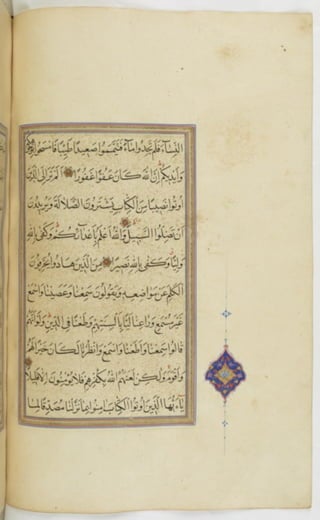 النساء فلم تجدوا ماء فتيمموا صعيدا طيبا فامسحوا بوجوهكم
وأيديكم إن الله كان عفوا غفورا ألم تر إلى الذين
أوتوا نصيبا من الكتاب يشترون الضلالة ويريدون
أن تضلوا السبيل والله أعلم بأعدائكم وكفى بالله
وليا وكفى بالله نصيرا من الذين هادوا يحرفون
الكلم عن مواضعه ويقولون سمعنا وعصينا واسمع
غير مسمع وراعنا ليا بألسنتهم وطعنا في الدين ولو أنهم
قالوا سمعنا وأطعنا واسمع وانظرنا لكان خيرا لهم
وأقوم ولكن لعنهم الله بكفرهم فلا يؤمنون إلا قليلا
يا أيها الذين أوتوا الكتاب آمنوا بما نزلنا مصدقا لما